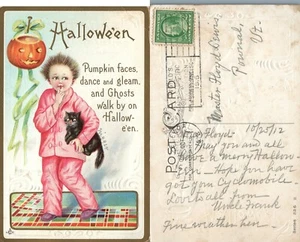 Hallowe'en
Pumpkin faces,
dance and gleam,
and Ghosts
walk by on
Hallow-
e'en.
POST CARD
Master Floyd Davis,
Pownal,
Vt.
10/25/12
Dear Floyd
Hope you and all
have a merry Hallow-
een - Hope you have
got your Cyclomobile
Love to all from
Uncle Frank
Fine weather here